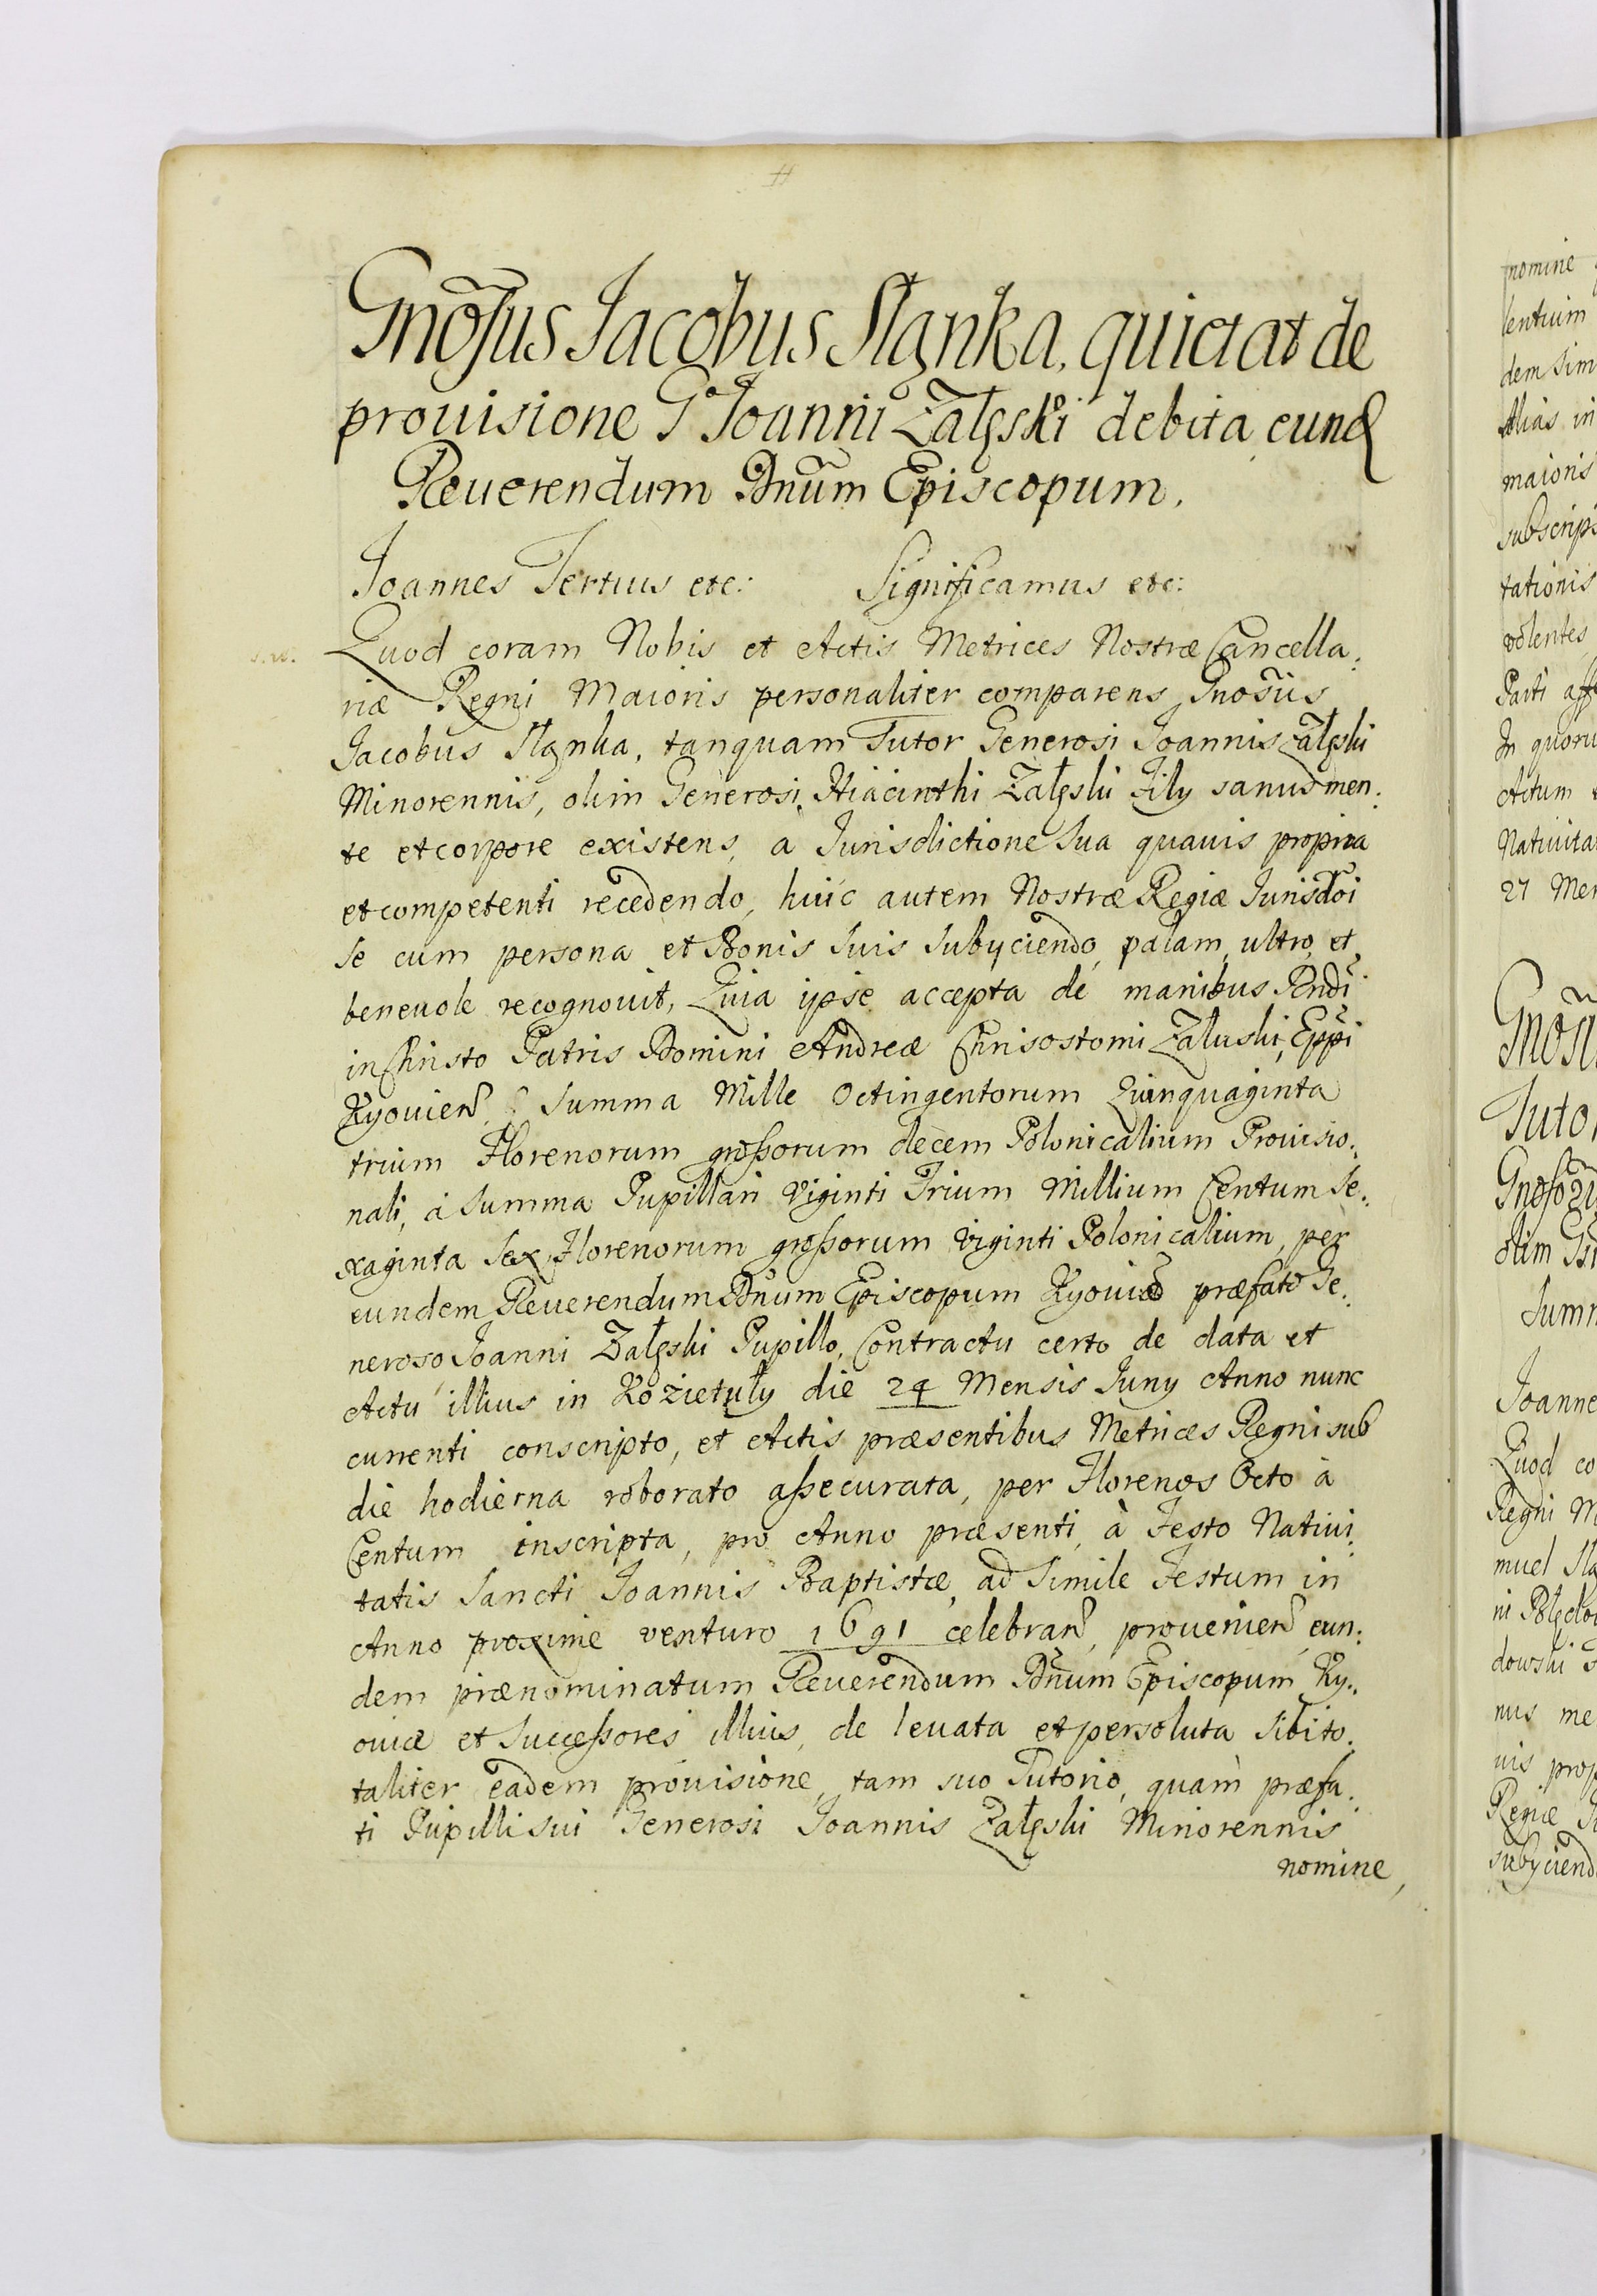 Gnõsus Jacobus Słąnka, quietat de
prouisione G. Joanni Załęski debita eund
Reuerendum Dnum Episcopum.
Joannes Tertius etc: Significamus etc:
Quod coram Nobis et Actis Metrices Nostræ Cancella:
riæ Regni Maioris personaliter comparens Gnosus
Jacobus Słąnka, tanquam Tutor Generosi Joannis Załęski
Minorennis, olim Generosi Hiacinthi Załęski Filij sanus men:
te et corpore existens, a Jurisdictione sua quauis propria
et competenti recedendo, huic autem Nostræ Regiæ Jurisdõi
se cum persona et Bonis suis subijciendo, palam, ultro, et
beneuole recognouit, Quia ipse accepta de manibus Rndi
in Christo Patris Domini Andreæ Chrisostomi Załuski, Eppi
Kyouien, Summa Mille Octingentorum Quinquaginta
trium Florenorum großorum decem Polonicalium Prouisio:
nali, à summa Pupillari Viginti Trium Millium Centum Se:
xaginta Sex Florenorum großorum viginti Polonicalium, per
eundem Reuerendum Dnum Episcopum Kyouiæ præfato Ge:
neroso Joanni Załęski Pupillo, Contractu certo de data et
Actu illius in Kozietuły die 24 Mensis Juny Anno nunc
currenti conscripto, et Actis præsentibus Metrices Regni sub
die hodierna roborato aßecurata, per Florenos Octo à
Centum inscripta, pro Anno præsenti, à Festo Natiui:
tatis Sancti Joannis Baptistæ, ad simile Festum in
Anno proxime venturo 1691 celebran, prouenien, eun:
dem prænominatum Reuerendum Dnum Episcopum Ky:
ouiæ et Succeßores illius, de leuata et persoluta sibi to:
taliter eadem prouisione, tam suo Tutorio, quam præfa:
ti Pupilli sui Generosi Joannis Załęski Minorennis
nomine,
nomine
lentium
dem sim
alias in
maioris
subscrip
tationis
volentes
Parti
In quoru
Actum
Natiuita
27 Men
Tuto
olim
Summ
Joanne
Quod co
Regni M
muel
dowski
nus me
uis prop
Regiæ
subijciend